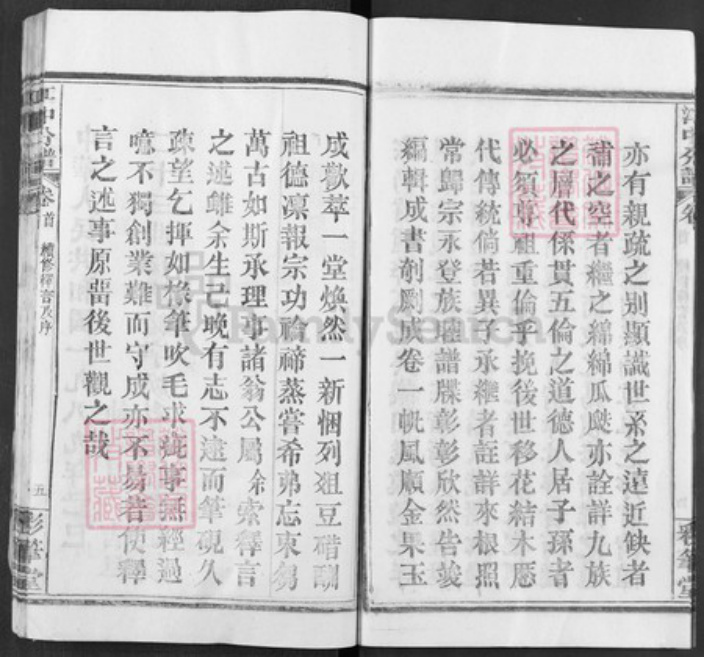 亦有親疏之别顯識世系之遠近缺者
補之空者繼之綿綿瓜瓞亦詮詳九族
之層代係貫五倫之道德人居子孫者
必須尊祖重倫乎挽後世移花結木慝
代傳統倘若異子承繼者註詳來根照
常歸宗永登族確譜牒彰彰欣然告竣
編輯成書剞劂成卷一帆風順金果玉
成歡萃一堂煥然一新悃列俎豆醋酬
祖德凛報宗功禴禘蒸嘗希弗忘東芻
萬古如斯承理事諸翁公屬余索釋言
之述雖余生己晚有志不逮而筆硯久
疎望乞抻如椽筆吹毛求疵事無經過
噫不獨創業難而守成亦不易昔使釋
言之述事原啚後世觀之哉
江中分譜
卷首
續修釋言及序
五
彩華堂
FamilySearch